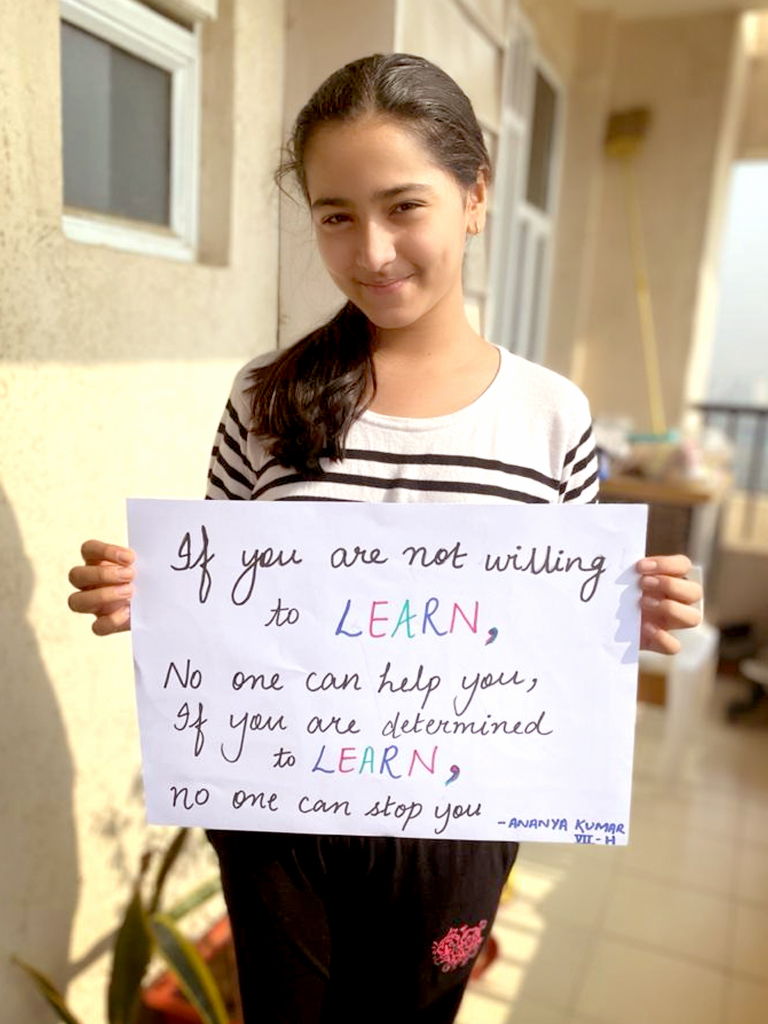 If you are not willing
to LEARN,
No one can help you,
If you are determined
to LEARN,
no one can stop you
- ANANYA KUMAR
VII - H